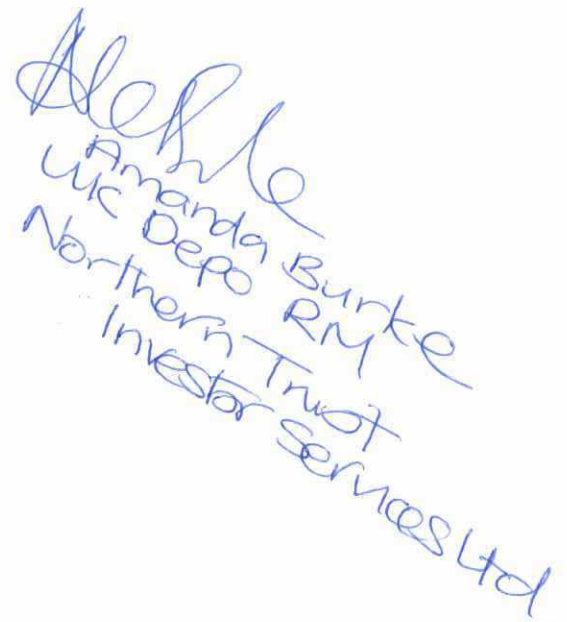 Amanda Burke
UK Depo RM
Northern Trust
Investor Services Ltd